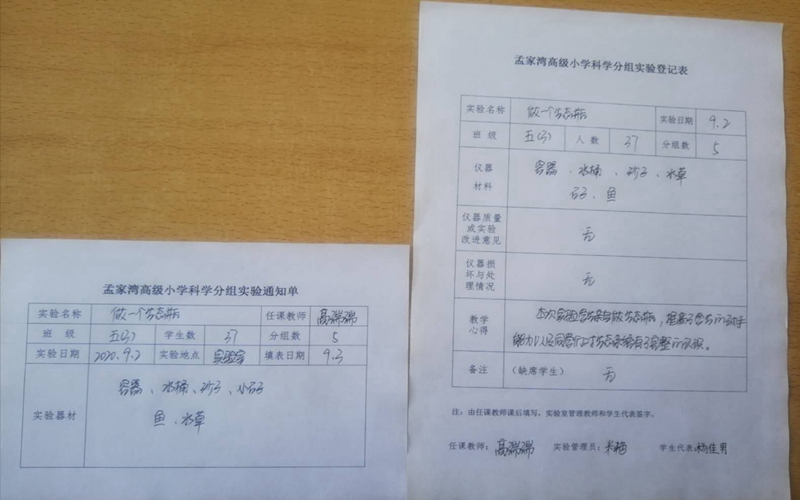 孟家湾高级小学科学分组实验通知单
实验名称 做一个生态瓶 任课教师 高瑞瑞
班 级 五(3) 学生数 37 分组数 5
实验日期 2020.9.2 实验地点 实验室 填表日期 9.3
实验器材 容器、水桶、沙子、小石子
鱼、水草
孟家湾高级小学科学分组实验登记表
实验名称 做一个生态瓶 实验日期 9.2
班 级 五(3) 人 数 37 分组数 5
仪器材料 容器、水桶、沙子、水草
石子、鱼
仪器质量
或实验
改进意见
无
仪器损
坏与处
理情况
无
教学
心得
本次实验
备注 (缺席学生) 无
注：由任课教师课后填写，实验室管理教师和学生代表签字。
任课教师： 高瑞瑞 实验管理员： 学生代表 杨佳男